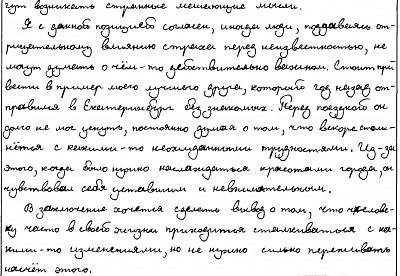 гут возникать странные мешающие мысли.
Я с данной позицией согласен, иногда люди, поддаваясь от-
рицательному влиянию страха перед неизвестностью, не
могут думать о чём-то действительно важном. Стоит при-
вести в пример моего лучшего друга, который год назад от-
правился в Екатеринбург без знакомых. Перед поездкой он
долго не мог уснуть, постоянно думая о том, что вскоре столк-
нётся с какими-то неожиданными трудностями. Из-за
этого, когда было нужно насладиться красотами города, он
чувствовал себя уставшим и невнимательным.
В заключение хочется сделать вывод о том, что челове-
ку часто в своей жизни приходится сталкиваться с ка-
кими-то изменениями, но не нужно сильно переживать
насчёт этого.